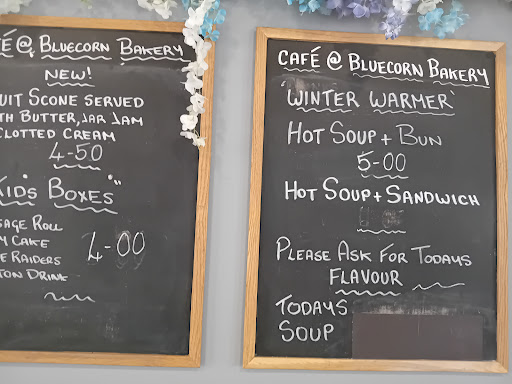 4-00
FÉ @ BLUECORN BAKERY
NEW!
UIT SCONE SERVED
TH BUTTER, JAR JAM
CLOTTED CREAM
4-50
KID'S BOXES"
SAGE ROLL
Y CAKE
E RAIDERS
TON DRINK
4-00
CAFÉ @ BLUECORN BAKERY
'WINTER WARMER'
HOT SOUP + BUN
5-00
HOT SOUP + SANDWICH
PLEASE ASK FOR TODAYS
FLAVOUR
TODAYS
SOUP